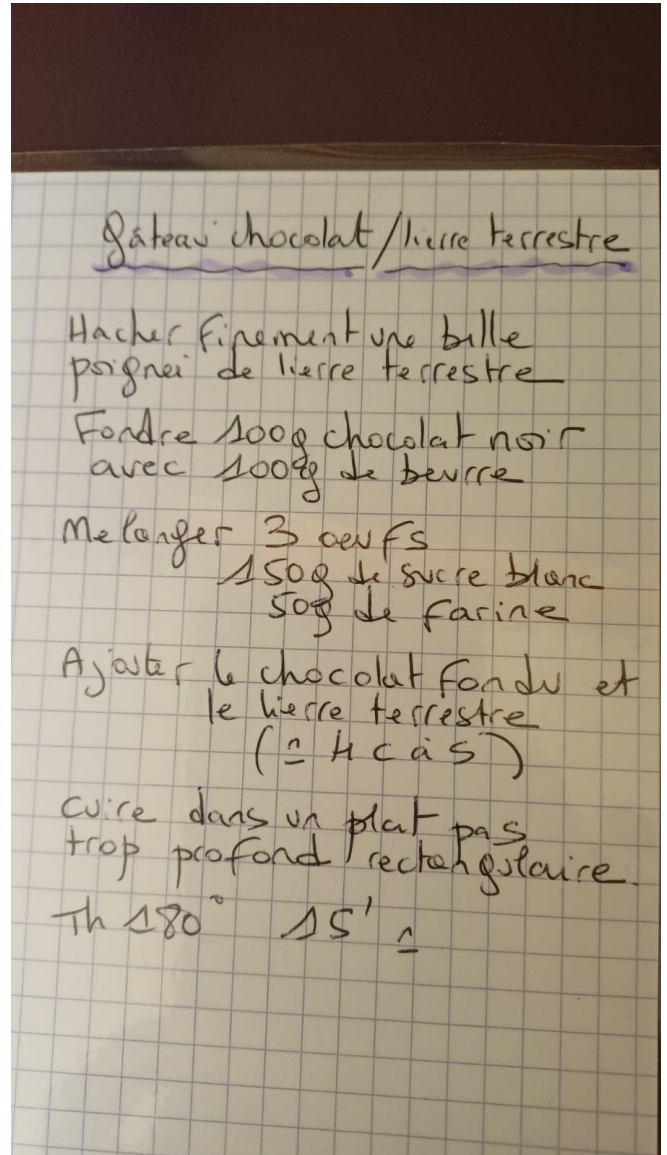 gâteau chocolat/lierre terrestre
Hacher finement une belle
poignei de lierre terrestre
Fondre 100g chocolat noir
avec 100g de beurre
Melanger 3 oeufs
150g de sucre blanc
50g de farine
Ajouter le chocolat fondu et
le lierre terrestre
(≏ 4 c à s)
cuire dans un plat pas
trop profond rectangulaire.
Th 180° 15' ≏